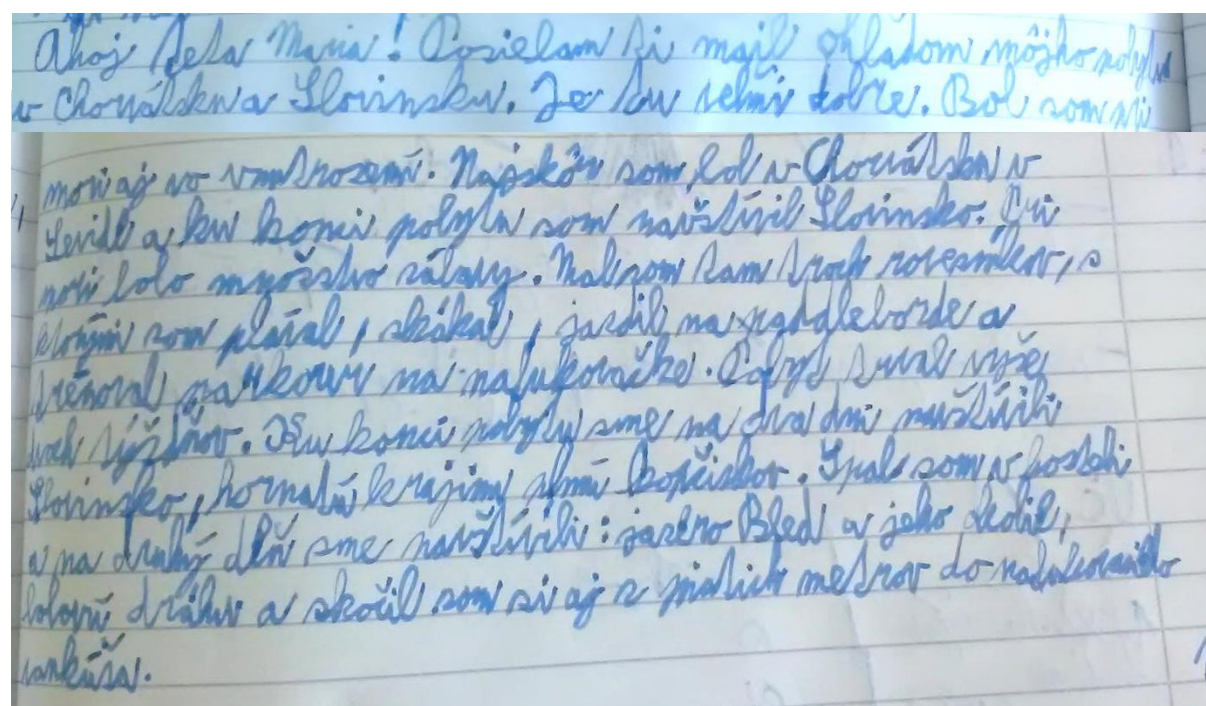 Ahoj teta Maria! Posielam ti mail ohľadom môjho pobytu
v Chorvátsku a Slovinsku. Je tu veľmi dobre. Bol som pri
mori aj vo vnutrozemí. Najskôr som bol v Chorvátsku v
a ku konci pobytu som navštívil Slovinsko. Pri
mori bolo množstvo zábavy. Mal som tam troch rovesníkov, s
ktorými som plával, skákal, jazdil na paddleborde a
trénoval parkour na nafukovačke. Pobyt trval vyše
dvoch týždňov. Ku koncu pobytu sme na dva dni navštívili
Slovinsko, hornatú krajinu plnú kopčiskov. Spal som v hosteli
a na druhý deň sme navštívili: jazero Bled a jeho okolie,
bobovú dráhu a skočil som si aj z piatich metrov do nafukovacieho
vankúša.